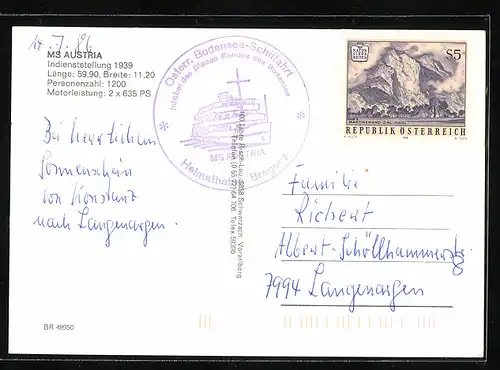 14.7.86
MS AUSTRIA
Indienststellung 1939
Länge: 59,90, Breite: 11,20
Personenzahl: 1200
Motorleistung: 2 x 635 PS
Bei herrlichem
Sonnenschein
von Konstanz
nach Langenargen.
BR 49950
Österr. Bodensee-Schiffahrt
Inhaber des Blauen Bandes des Bodensees
MS AUSTRIA
Heimathafen Bregenz
Risch-Lau, 6858 Schwarzach, Vorarlberg
Telefon (0 55 72) Telex 59300
S5
MARTINSWAND-ZIRL-TIROL
REPUBLIK ÖSTERREICH
Familie
Richert
Albert-Schöllhammerstr 8
7994 Langenargen